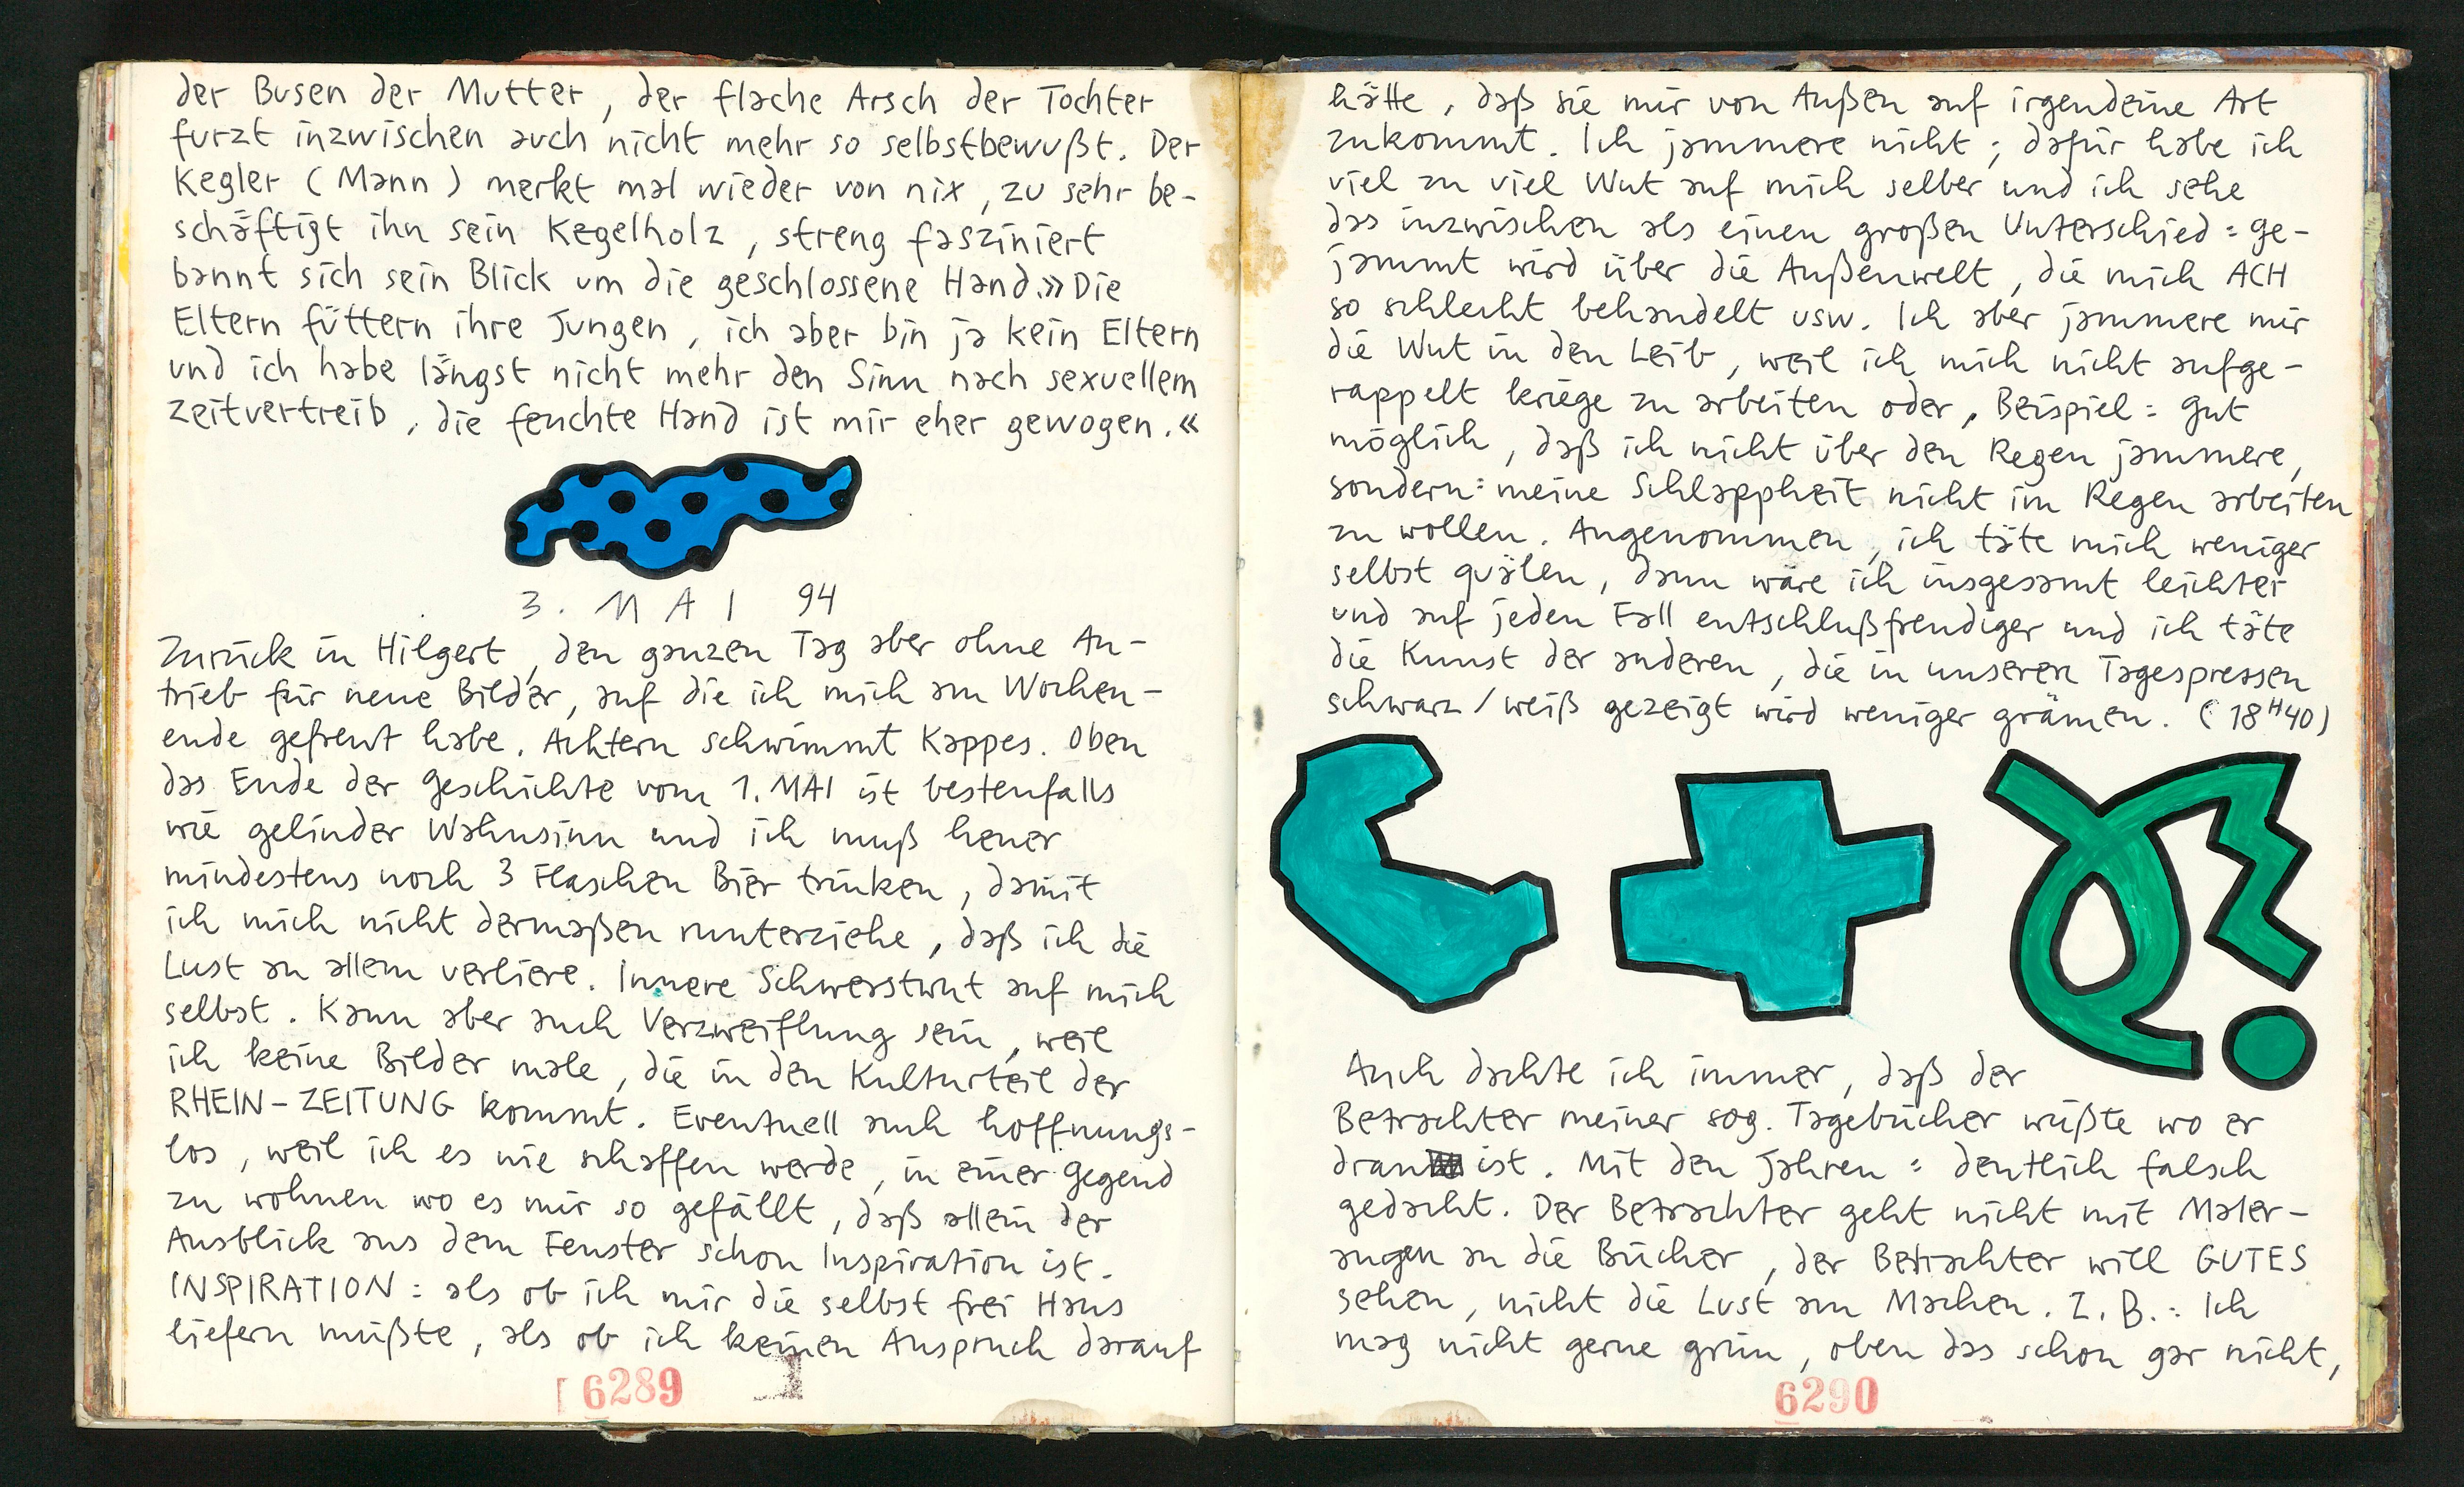 der Busen der Mutter, der flache Arsch der Tochter
furzt inzwischen auch nicht mehr so selbstbewußt. Der
Kegler (Mann) merkt mal wieder von nix, zu sehr be-
schäftigt ihn sein Kegelholz, streng fasziniert
bannt sich sein Blick um die geschlossene Hand.» Die
Eltern füttern ihre Jungen, ich aber bin ja kein Eltern
und ich habe längst nicht mehr den Sinn nach sexuellem
Zeitvertreib, die feuchte Hand ist mir eher gewogen.«
3. MAI 94
Zurück in Hilgert, den ganzen Tag aber ohne An-
trieb für neue Bilder, auf die ich mich am Wochen-
ende gefreut habe. Achtern schwimmt Kappes. Oben
das Ende der Geschichte vom 1. MAI ist bestenfalls
wie gelinder Wahnsinn und ich muß heuer
mindestens noch 3 Flaschen Bier trinken, damit
ich mich nicht dermaßen runterziehe, daß ich die
Lust an allem verliere. Innere Schwerstwut auf mich
selbst. Kann aber auch Verzweiflung sein, weil
ich keine Bilder male, die in den Kulturteil der
RHEIN-ZEITUNG kommt. Eventuell auch hoffnungs-
los, weil ich es nie schaffen werde, in einer Gegend
zu wohnen wo es mir so gefällt, daß allein der
Ausblick aus dem Fenster schon Inspiration ist.
INSPIRATION: als ob ich mir die selbst frei Haus
liefern müßte, als ob ich keinen Anspruch darauf
6289
hätte, daß sie mir von Außen auf irgendeine Art
zukommt. Ich jammere nicht; dafür habe ich
viel zu viel Wut auf mich selber und ich sehe
das inzwischen als einen großen Unterschied: ge-
jammt wird über die Außenwelt, die mich ACH
so schlecht behandelt usw. Ich aber jammere mir
die Wut in den Leib, weil ich mich nicht aufge-
rappelt kriege zu arbeiten oder, Beispiel: gut
möglich, daß ich nicht über den Regen jammere,
sondern: meine Schlappheit nicht im Regen arbeiten
zu wollen. Angenommen, ich täte mich weniger
selbst quälen, dann wäre ich insgesamt leichter
und auf jeden Fall entschlußfreudiger und ich täte
die Kunst der anderen, die in unseren Tagespressen
schwarz/weiß gezeigt wird weniger grämen. (18H40)
Auch dachte ich immer, daß der
Betrachter meiner sog. Tagebücher wüßte wo er
dran ist. Mit den Jahren: deutlich falsch
gedacht. Der Betrachter geht nicht mit Maler-
augen an die Bücher, der Betrachter will GUTES
sehen, nicht die Lust am Machen. Z.B.: Ich
mag nicht gerne grün, oben das schon gar nicht,
6290